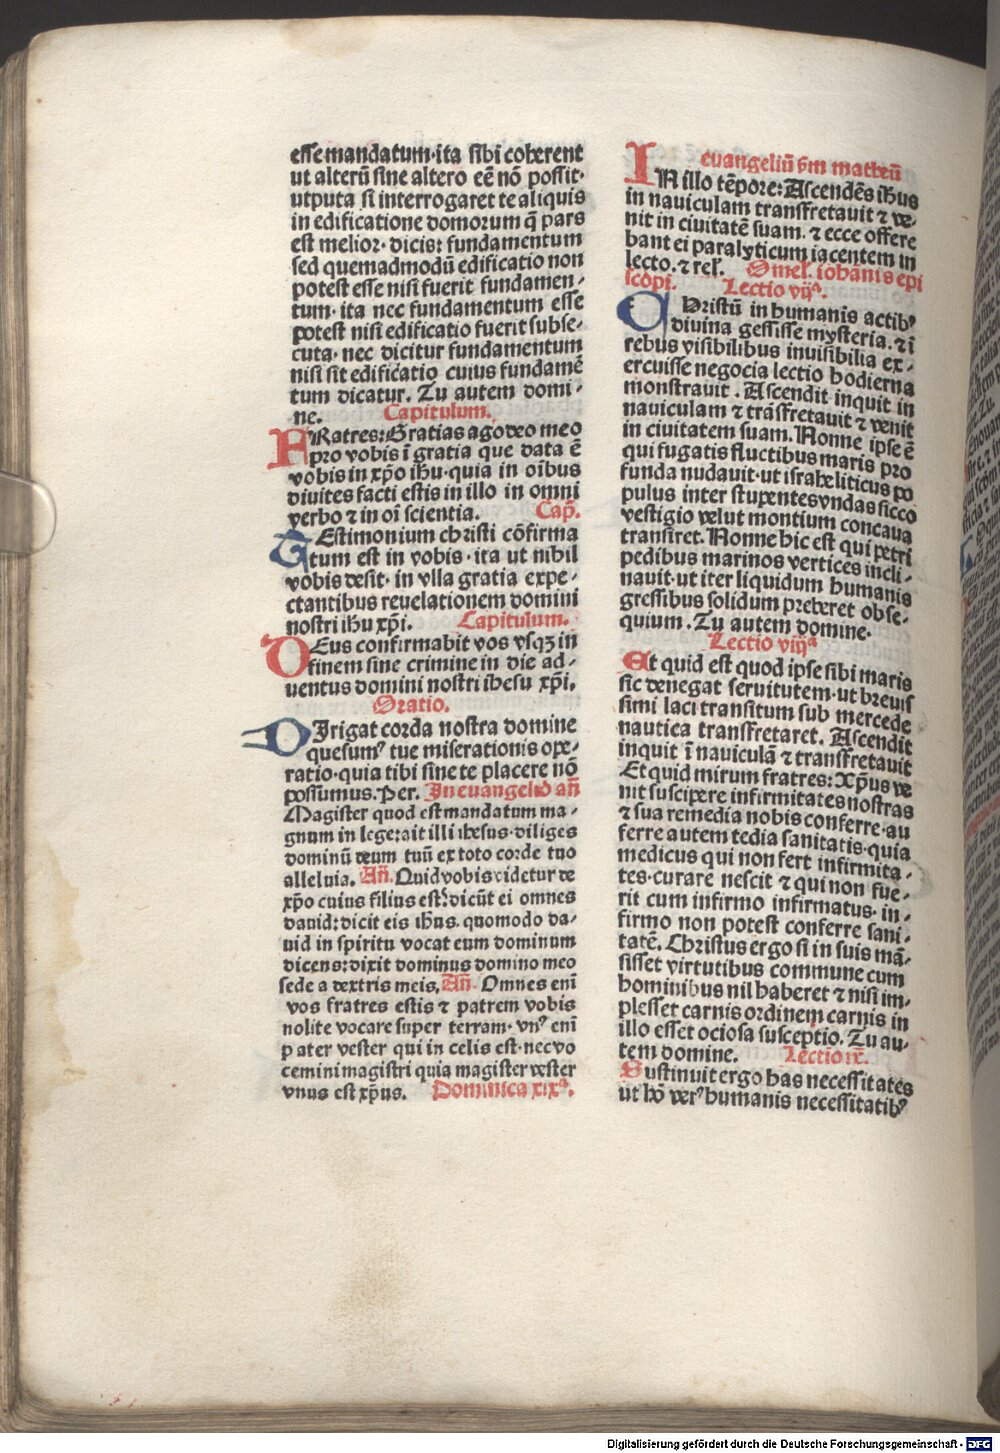 esse mandatum·ita sibi coherent
ut alterū sine altero eē nō possit·
utputa si interrogaret te aliquis
in edificatione domorum q̄ pars
est melior· dicis: fundamentum
sed quemadmodū edificatio non
potest esse nisi fuerit fundamen-
tum· ita nec fundamentum esse
potest nisi edificatio fuerit subse-
cuta· nec dicitur fundamentum
nisi sit edificatio cuius fundamē
tum dicatur. Tu autem domi-
ne. Capitulum.
FRatres: Gratias ago deo meo
pro vobis ī gratia que data ē
vobis in xp̄o ihu· quia in oībus
diuites facti estis in illo in omni
verbo ⁊ in oī scientia. Cap̄.
TEstimonium christi cōfirma
tum est in vobis· ita ut nihil
vobis desit· in vlla gratia expe-
ctantibus reuelationem domini
nostri ihu xp̄i. Capitulum.
DEus confirmabit vos vsqꝫ in
finem sine crimine in die ad-
uentus domini nostri ihesu xp̄i.
Oratio.
DIrigat corda nostra domine
quesumꝰ tue miserationis ope-
ratio· quia tibi sine te placere nō
possumus. Per. In euangelio an̄
Magister quod est mandatum ma-
gnum in lege: ait illi ihesus· diliges
dominū deum tuū ex toto corde tuo
alleluia. An̄. Quid vobis videtur de
xp̄o cuius filius est: dicūt ei omnes
dauid: dicit eis ihus. quomodo da-
uid in spiritu vocat eum dominum
dicens: dixit dominus domino meo
sede a dextris meis. An̄. Omnes eni
vos fratres estis ⁊ patrem vobis
nolite vocare super terram· vnꝰ eni
pater vester qui in celis est· nec vo
cemini magistri quia magister vester
vnus est xp̄us. Dominica xixª.
euangeliū s̄m matheū
IN illo tēpore: Ascendēs ihus
in nauiculam transfretauit ⁊ ve-
nit in ciuitatē suam. ⁊ ecce offere
bant ei paralyticum iacentem in
lecto. ⁊ rel̄. Omel̄. iohanis epi
scopi. Lectio vijª.
CHristū in humanis actibꝰ
diuina gessisse mysteria. ⁊ ī
rebus visibilibus inuisibilia ex-
ercuisse negocia lectio hodierna
monstrauit. Ascendit inquit in
nauiculam ⁊ trāsfretauit ⁊ venit
in ciuitatem suam. Nonne ipse ē
qui fugatis fluctibus maris pro
funda nudauit· ut israheliticus po
pulus inter stupentes vndas sicco
vestigio velut montium concaua
transiret. Nonne hic est qui petri
pedibus marinos vertices incli-
nauit· ut iter liquidum humanis
gressibus solidum preberet obse-
quium. Tu autem domine.
Lectio viijª
Et quid est quod ipse sibi maris
sic denegat seruitutem· ut breuis
simi laci transitum sub mercede
nautica transfretaret. Ascendit
inquit ī nauiculā ⁊ transfretauit
Et quid mirum fratres: Xp̄us ve
nit suscipere infirmitates nostras
⁊ sua remedia nobis conferre· au
ferre autem tedia sanitatis· quia
medicus qui non fert infirmita-
tes· curare nescit ⁊ qui non fue-
rit cum infirmo infirmatus· in-
firmo non potest conferre sani-
tatē. Christus ergo si in suis mā-
sisset virtutibus commune cum
hominibus nil haberet ⁊ nisi im-
plesset carnis ordinem carnis in
illo esset ociosa susceptio. Tu au-
tem domine. Lectio ix.
Sustinuit ergo has necessitates
ut hō verꝰ humanis necessitatibꝰ
Digitalisierung gefördert durch die Deutsche Forschungsgemeinschaft - DFG